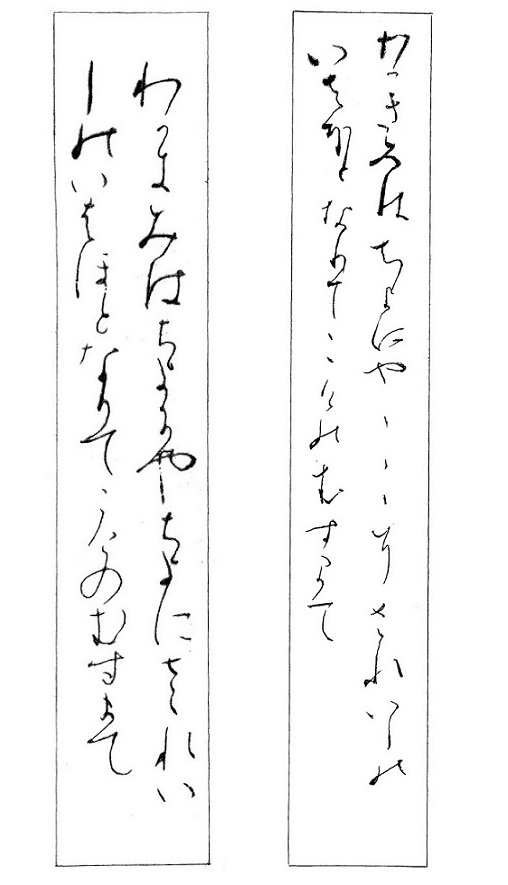 わかきみはちよにやゝゝゝさゝれいしの
いはほとなりてこけのむすまて
わかきみはちよにやちよにさゝれい
しのいはほとなりてこけのむすまて